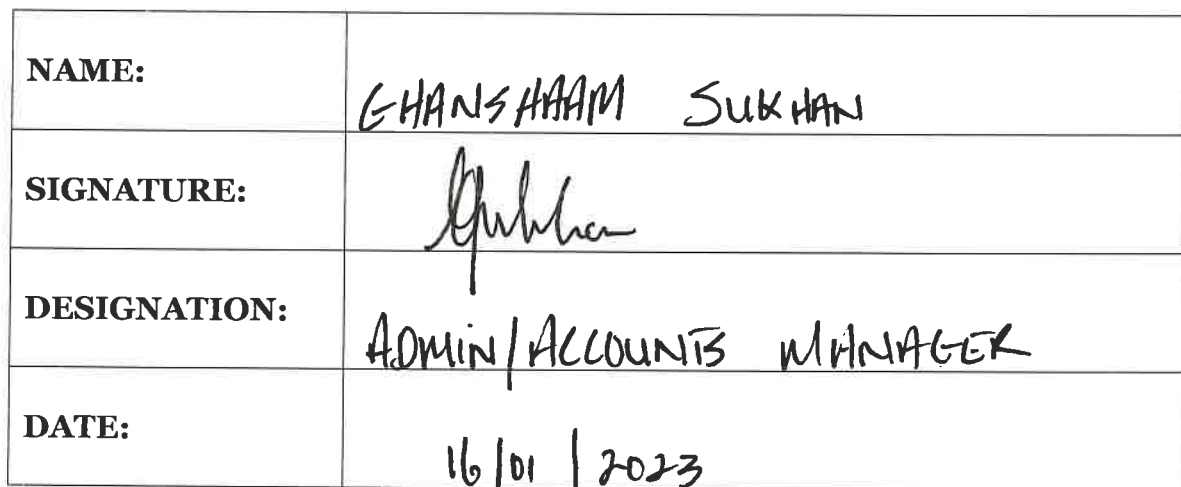 NAME: GHANSHAAM SUKHAN
SIGNATURE:
DESIGNATION: ADMIN/ACCOUNTS MANAGER
DATE: 16/01/2023